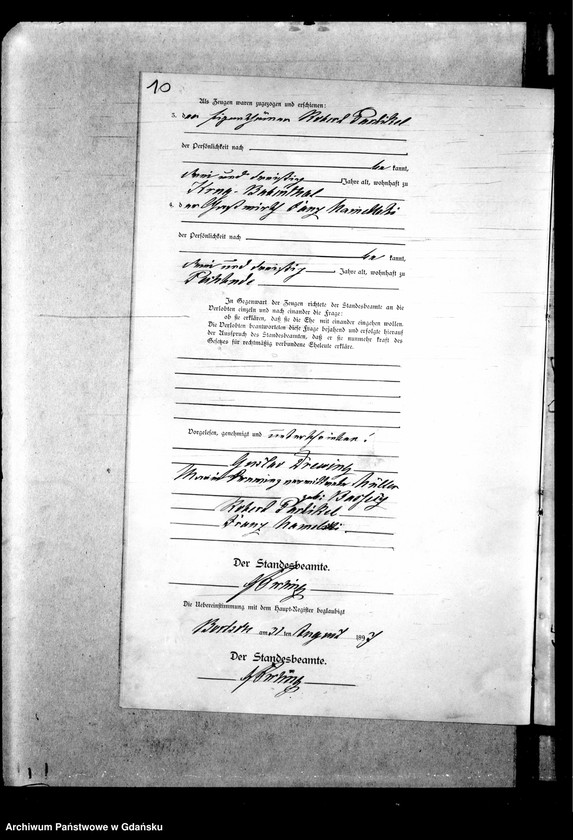 10
Als Zeugen waren zugezogen und erschienen:
3. der Eigenthümer Robert
der Persönlichkeit nach
be kannt,
drei und dreißig Jahre alt, wohnhaft zu
4. der Gastwirth Franz
der Persönlichkeit nach
be kannt,
drei und dreißig Jahre alt, wohnhaft zu
In Gegenwart der Zeugen richtete der Standesbeamte an die
Verlobten einzeln und nach einander die Frage:
ob sie erklären, daß sie die Ehe mit einander eingehen wollen.
Die Verlobten beantworteten diese Frage bejahend und erfolgte hierauf
der Ausspruch des Standesbeamten, daß er sie nunmehr kraft des
Gesetzes für rechtmäßig verbundene Eheleute erkläre.
Vorgelesen, genehmigt und unterschrieben:
Gustav Drewing
Marie Drewing verwittwete Müller
geb.
Robert
Franz
Der Standesbeamte.
Die Uebereinstimmung mit dem Haupt-Register beglaubigt
am 31 ten August 1897
Der Standesbeamte.
Archiwum Państwowe w Gdańsku